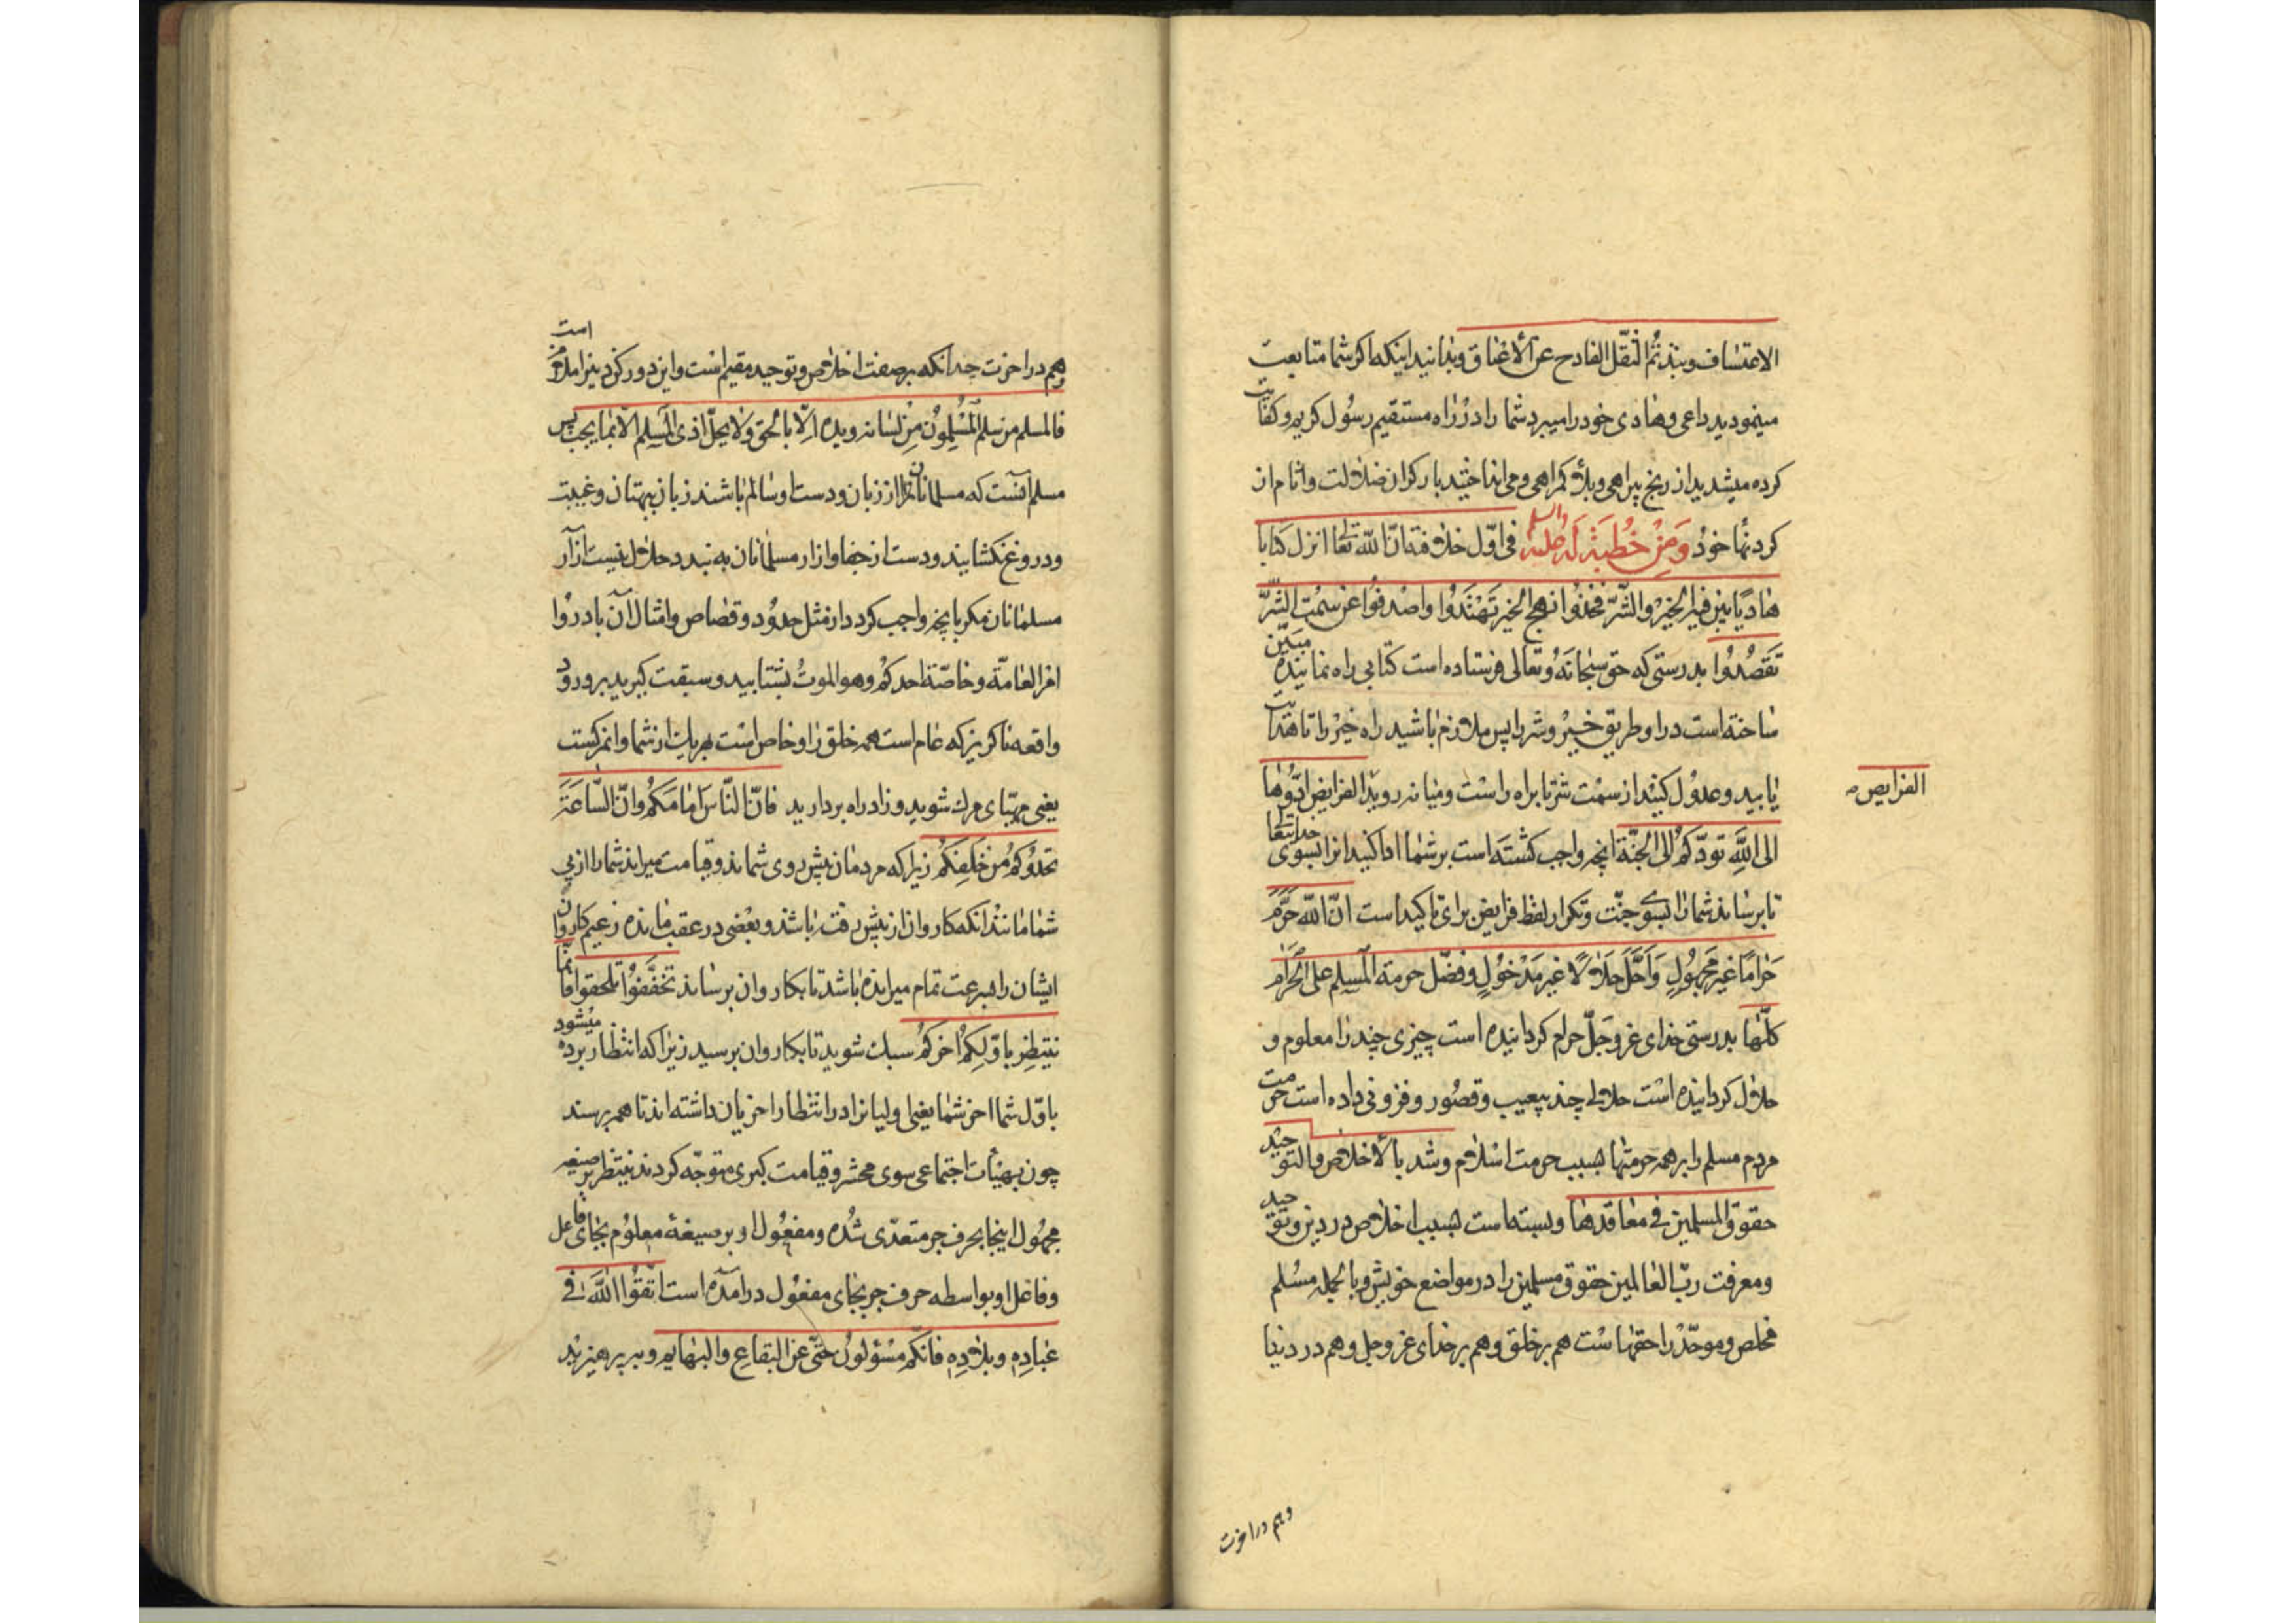 الاعتساف ونبذتم الثقل الفادح عن الأعناق وبدانید اینکه اکر شما متابعت
مینمودید داعی وهادی خود را میبرد شما را در راه مستقیم رسول کریم وکفایت
کرده میشدید از رنج بیراهی وبلاء کمراهی ومی انداختید بار کران ضلالت واثام از
کردنها خود ومن خطبة له علیه السلم فی اوّل خلافته انّ الله تعا انزل کتابا
هادیا بیّن فیه الخیر والشرّ فخذوا نهج الخیر تهتدوا واصدفوا عن سمت الشرّ
تقصدوا بدرستی که حق سبحانه وتعالی فرستاده است کتابی راه نماینده مبیّن
ساخته است در او طریق خیر وشر را پس ملازم باشید راه خیر را تا هدایت
یابید وعدول کنید از سمت شر تا براه راست ومیانه روید الفرایض ادّوها
الفرایض
الی الله تودّکم الی الجنّة انچه واجب کشته است بر شما ادا کنید انرا بسوی خدایتعا
تا برساند شما را بسوی جنّت وتکرار لفظ فرایض برای تاکید است انّ الله حرّم
حراما غیر مجهول واحّل حلالا غیر مدخول وفضّل حرمة المسلم علی الحرم
کلّها بدرستی خدای عز وجلّ حرام کردانیده است چیزی چند را معلوم و
حلال کردانیده است حلالی چند بیعیب وقصور وفزونی داده است حرمت
مردم مسلم را بر همه حرمتها بسبب حرمت اسلام وشد بالاخلاص والتوحید
حقوق المسلمین فی معاقدها وبسته است بسبب اخلاص در دین وتوحید
ومعرفت ربّ العالمین حقوق مسلمین را در مواضع خویش وبالجمله مسلم
مخلص وموحّد را حقهاست هم بر خلق وهم بر خدای عز وجل وهم در دنیا
وهم در اخرت
وهم در اخرت چه انکه بر صفت اخلاص وتوحید مقیم است واین دو رکن دین اسلام است
فالمسلم من سلم المسلمون من لسانه ویده الّا بالحق ولا یحلّ اذی المسلم الّا بما یجب پس
مسلم آنست که مسلمانان از زبان ودست او سالم باشند زبان ببهتان وغیبت
ودروغ نکشایند ودست از جفا وازار مسلمانان به بندد حلال نیست آزار
مسلمانان مکر بانچه واجب کردد از مثل حدود وقصاص وامثال آن بادروا
امر العامّة وخاصّة احدکم وهو الموت بشتابید وسبقت کیرید بر ورود
واقعه ناکزیر که عام است همه خلق را وخاص است بهر یک از شما وان مرکست
یعنی مهیّای مرک شوید وزاد راه بردارید فانّ الناس امامکم وانّ السّاعة
تحدوکم من خلفکم زیرا که مردمان پیش روی شماند وقیامت میراند شما را از پی
شما مانند انکه کاروان از پیش رفته باشد وبعضی در عقب مانده زعیم کاروان
ایشان را بسرعت تمام میرانده باشد تا بکاروان برساند تخفّفوا تلحقوا فانّما
ینتظر باوّلکم اخرکم سبک شوید تا بکاروان برسید زیرا که انتظار برده میشود
باوّل شما اخر شما یعنی اولیانرا در انتظار اخریان داشته اند تا همه برسند
چون بهیئات اجتماعی سوی محشر وقیامت کبری متوجّه کردند ینتظر بر صیغه
مجهول اینجا بحرف جر متعدّی شده ومفعول او بر صیغهٔ معلوم بجای فاعل
وفاعل او بواسطه حرف جر بجای مفعول درآمده است اتّقوا الله فی
عباده وبلاده فانّکم مسؤلون حتّی عن البقاع والبهایم وبپرهیزید